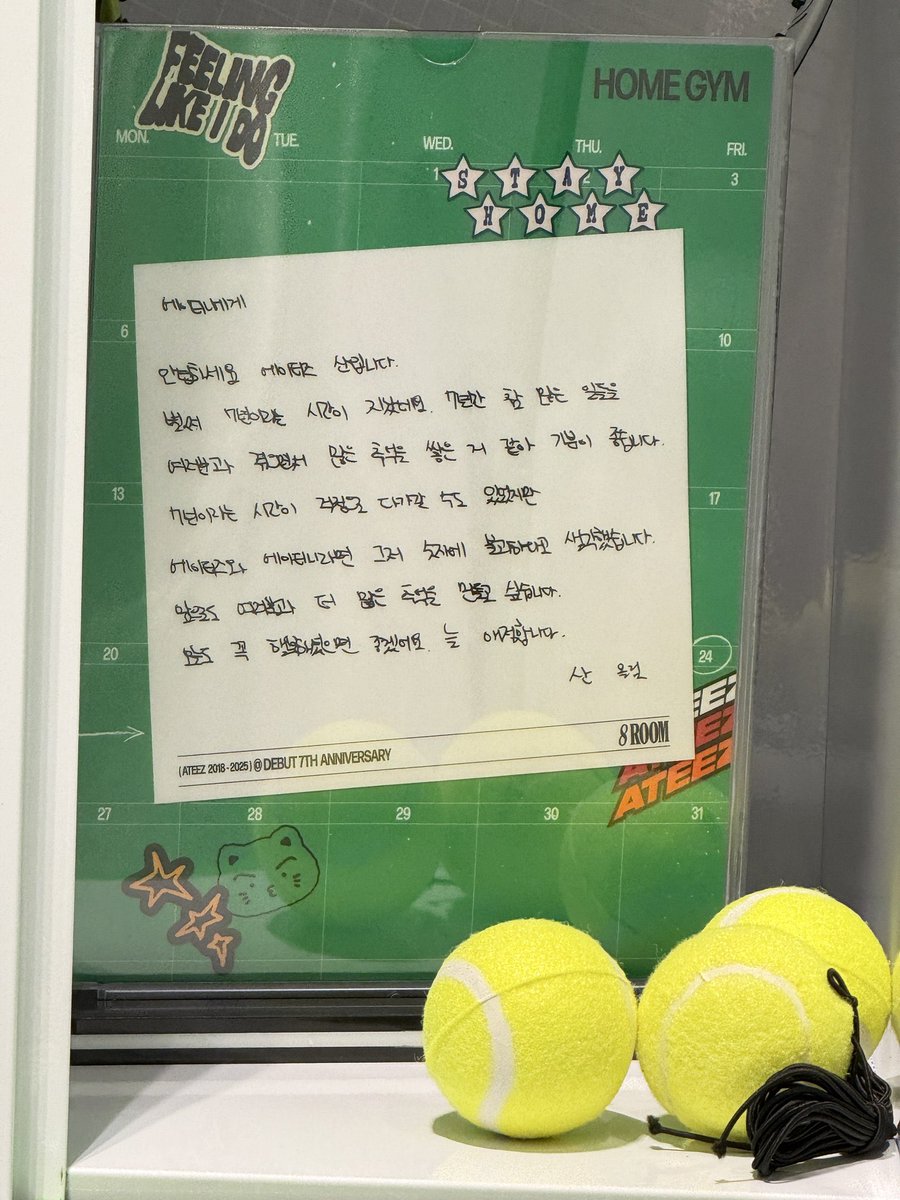 FEELING
LIKE I DO
HOME GYM
MON.
TUE.
WED.
THU.
FRI.
1
2
3
STAY
HOME
6
10
에이티니에게
안녕하세요 에이티즈 산입니다.
벌써 7년이라는 시간이 지났네요. 7년간 참 많은 일들을
여러분과 겪으면서 많은 추억을 쌓은 거 같아 기분이 좋습니다.
7년이라는 시간이 걱정으로 다가갈 수도 있었지만
에이티즈와 에이티니라면 그저 숫자에 불과하다고 생각했습니다.
앞으로도 여러분과 더 많은 추억을 만들고 싶습니다.
꼭 행복하셨으면 좋겠어요. 늘 애정합니다.
산 올림
13
17
20
24
8 ROOM
(ATEEZ 2018-2025) @ DEBUT 7TH ANNIVERSARY
ATEEZ
ATEEZ
ATEEZ
27
28
29
30
31